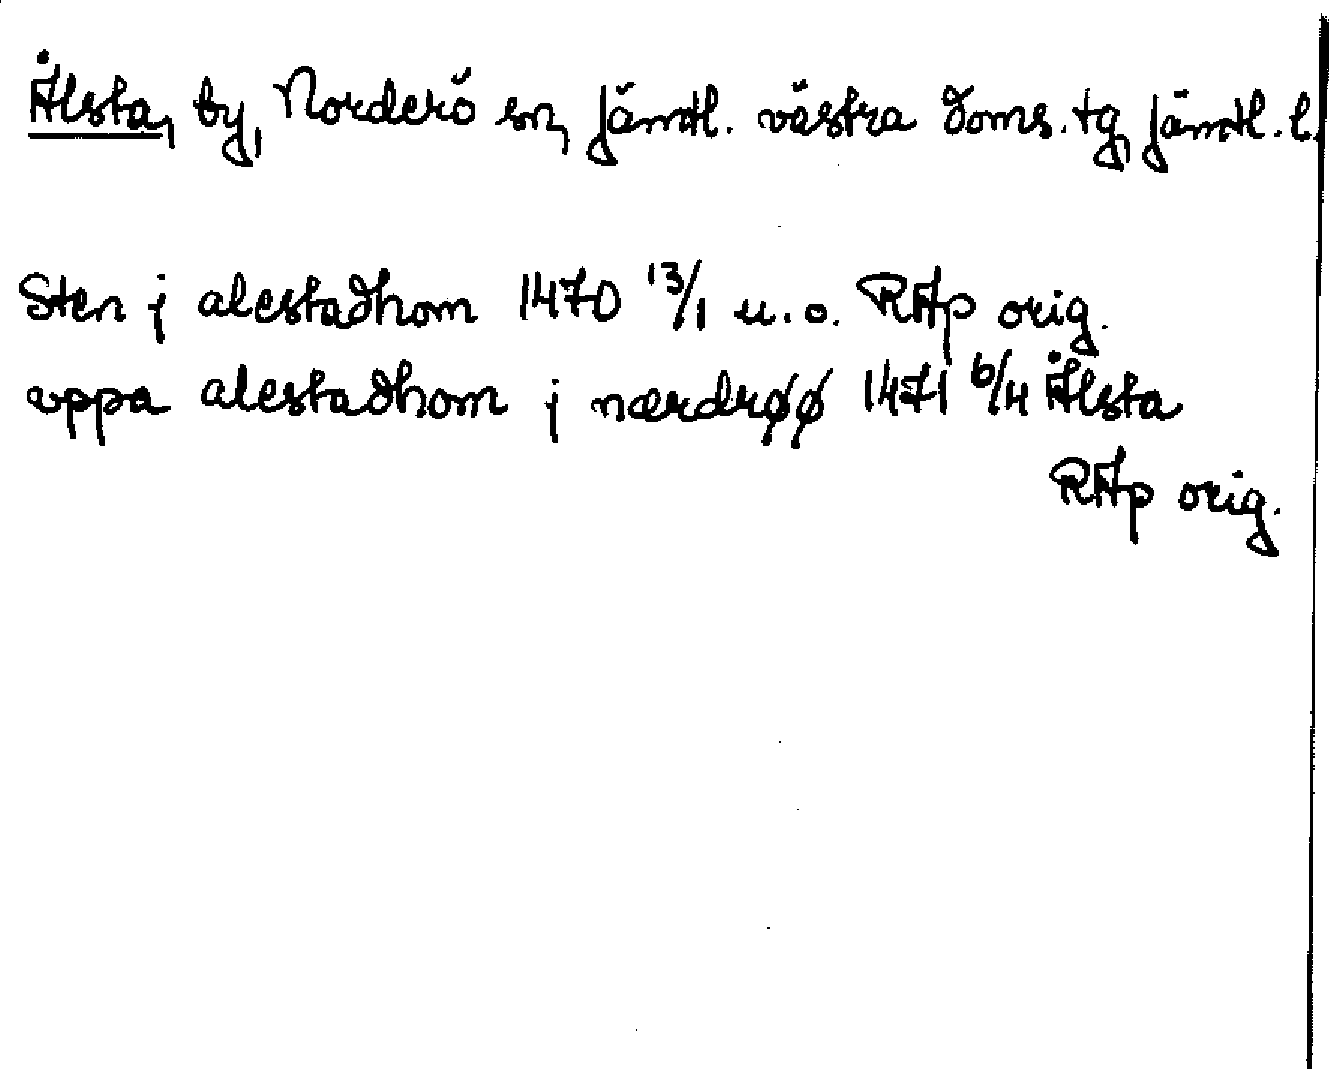 Ålsta, by, Norderö sn, Jämtl. västra doms. tg, Jämtl. l.
Sten j alestadhom 1470 13/1 u.o. RAp orig.
vppa alestadhom j nærdrøø 1471 6/4 Ålsta
RAp orig.